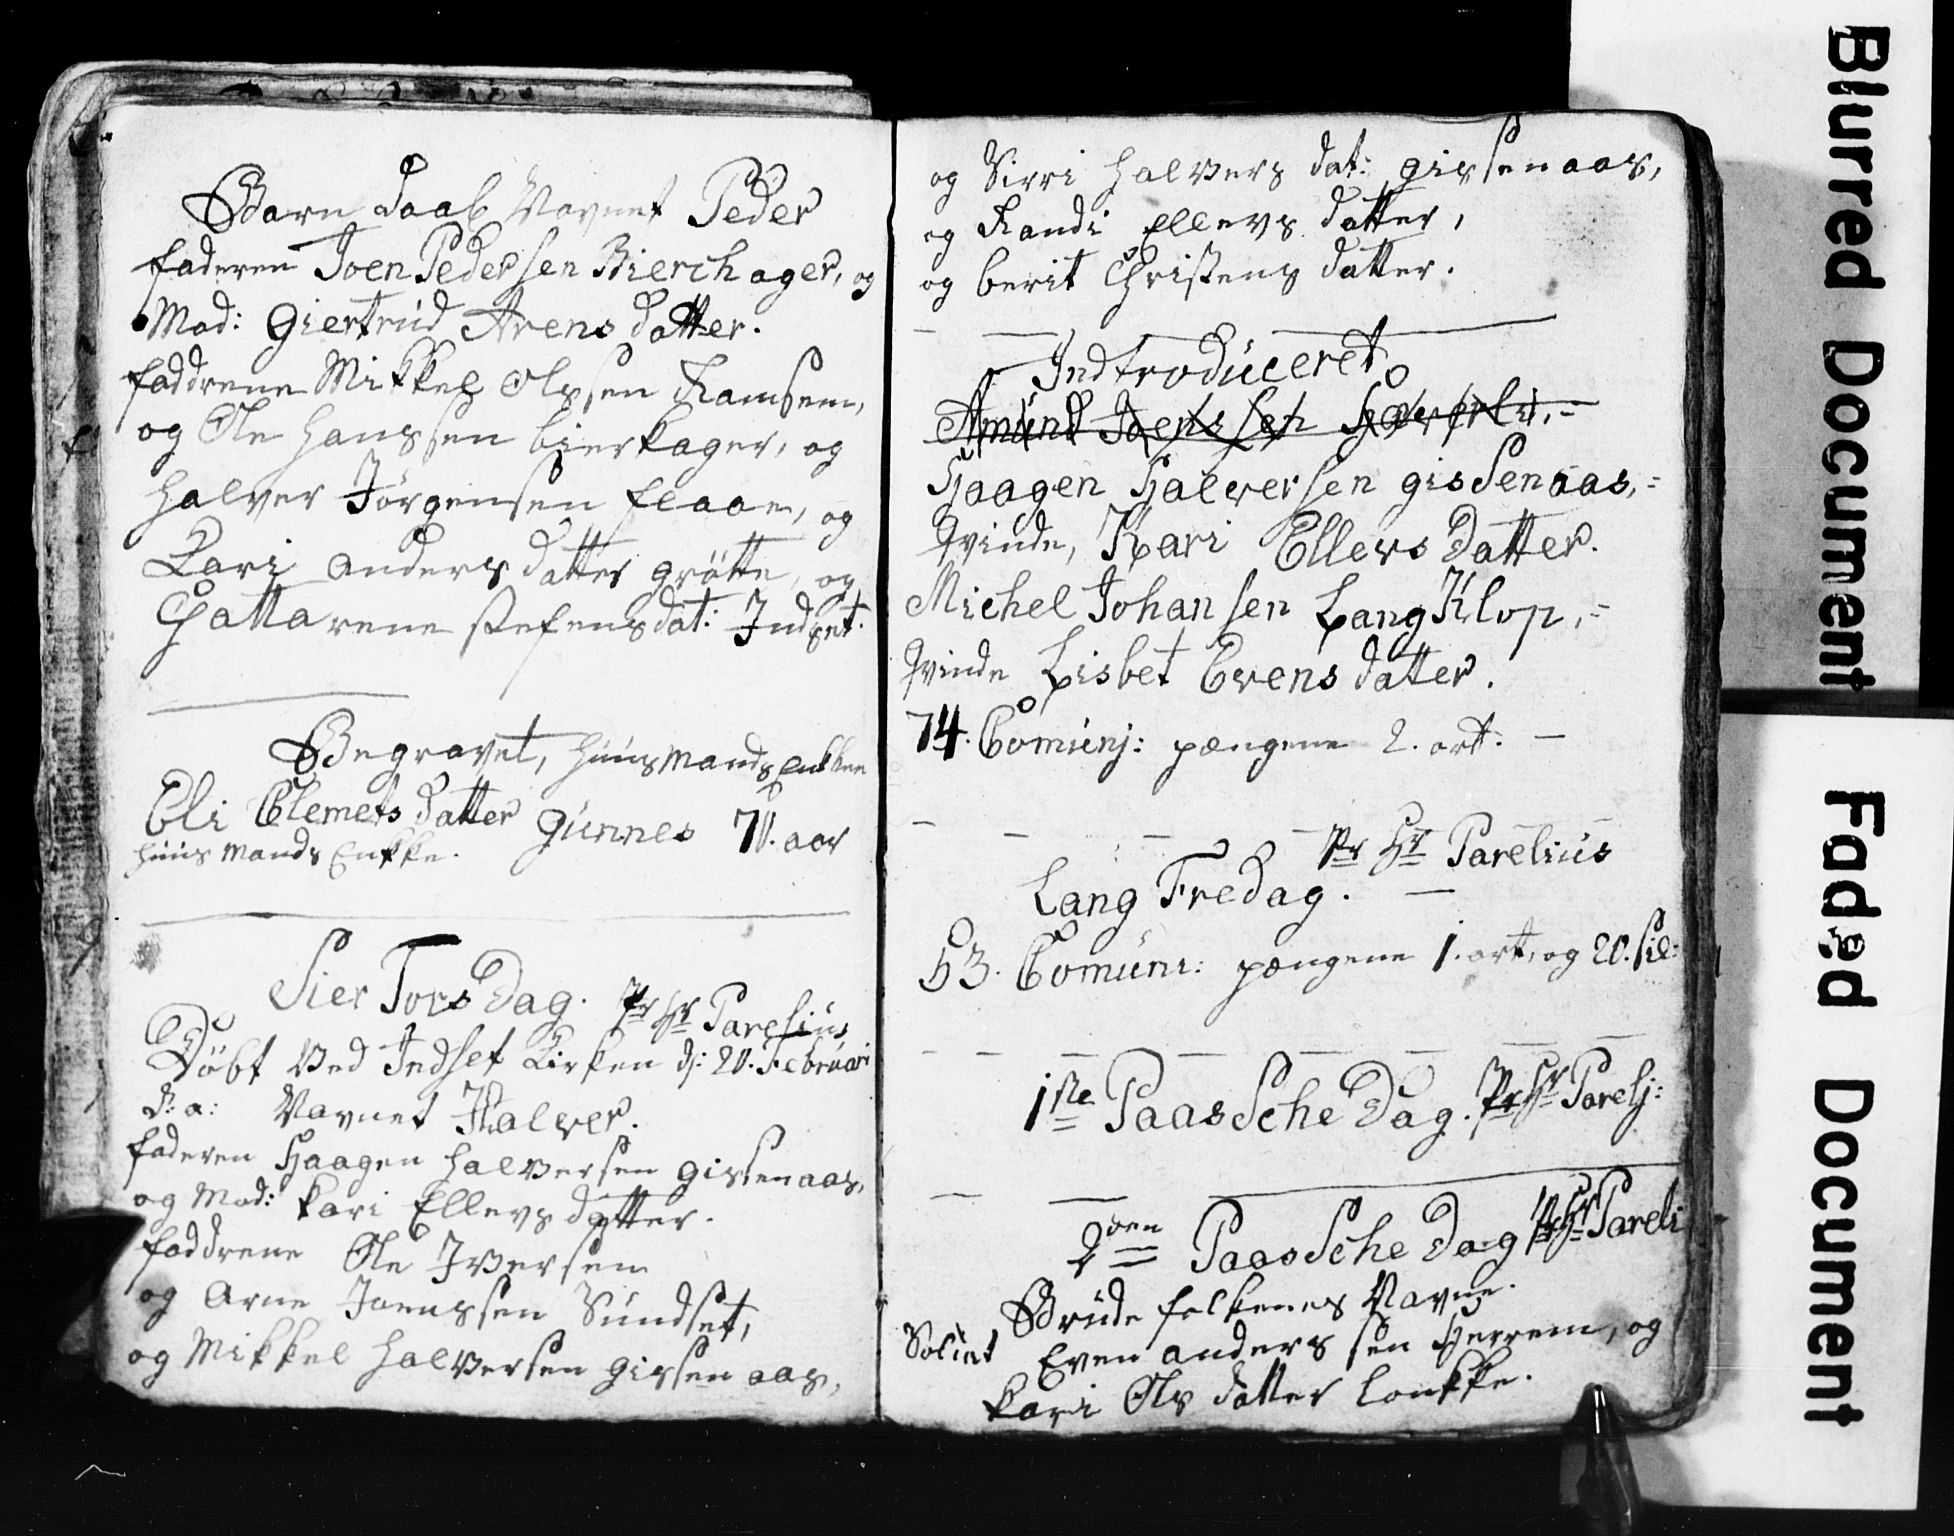 Barn Daab Navnet Peder
faderen Joen Pedersen Bierchager, og
Mod: Giertrud Arens Datter.
faddrene Mikkel Olssen Ramsem,
og Ole Hanssen bierkager, og
Halver Jörgensen flaae, og
Kari Anders datter Grötte, og
Chattarene Stefens dat: Indset.
Begravet, Huusmands Enkken
Eli Clemets Datter Gunnes 70. aar
Huus Mands Enkke.
Sier Tors Dag. Pr Hr Parelius
Döbt Ved Indset Kirken d: 20. Februari
d: a: Navnet Halver.
faderen Haagen Halversen Gissenaas,
og Mod: Kari Ellevs datter.
faddrene Ole Iversen
og Arne Joenssen Sundset,
og Mikkel Halversen Gissenaas,
og Sirri Halvers dat: Gissenaas,
og Randi Ellevs datter,
og berit Christens datter.
Indtroduceret
Amund Joenssen
Haagen Halversen Gissenaas,
Qvinde, Kari Ellevs Datter.
Michel Johansen Lang Klop,
Qvinde Lisbet Evens datter.
74. Comunj: pængene 2. ort.
Pr Hr Parelius
Lang Fredag.
53. Comuni: pængene 1. ort, og 20. sil:
1ste Paasche Dag. Pr Hr Parelj:
2den Paasche Dag Pr Hr Pareli
Brude folkenes Navne.
Soldat Even Anderssen Herrem, og
Kari Ols datter Lonkke.
Blurred Document
Faded Document